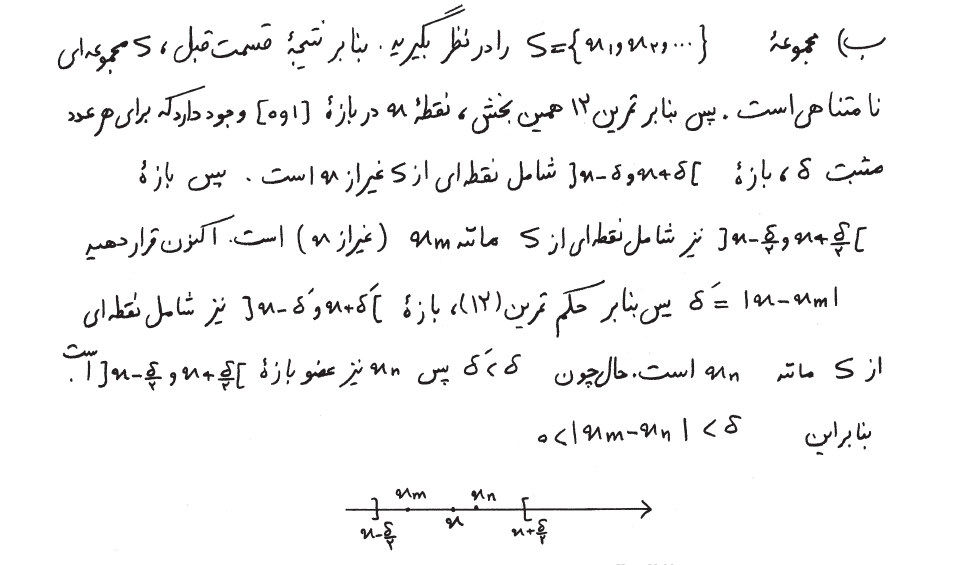 ب) مجموعهٔ S={x₁,x₂,...} را در نظر بگیرید. بنا بر نتیجهٔ قسمت قبل، S مجموعه‌ای
نامتناهی است. پس بنابر تمرین ۱۲ همین بخش، نقطهٔ x در بازهٔ [۰,۱] وجود دارد که برای هر عدد
مثبت δ، بازهٔ ]x-δ,x+δ[ شامل نقطه‌ای از S غیر از x است. پس بازهٔ
]x-δ/۲,x+δ/۲[ نیز شامل نقطه‌ای از S مانند xₘ (غیر از x) است. اکنون قرار دهید
δ́ = |x-xₘ| پس بنابر حکم تمرین (۱۲)، بازهٔ ]x-δ́,x+δ́[ نیز شامل نقطه‌ای
از S مانند xₙ است. حال چون δ́<δ پس xₙ نیز عضو بازهٔ ]x-δ/۲,x+δ/۲[ است.
بنابراین ۰<|xₘ-xₙ|<δ
xₘ xₙ
] x [
x-δ/۲ x+δ/۲